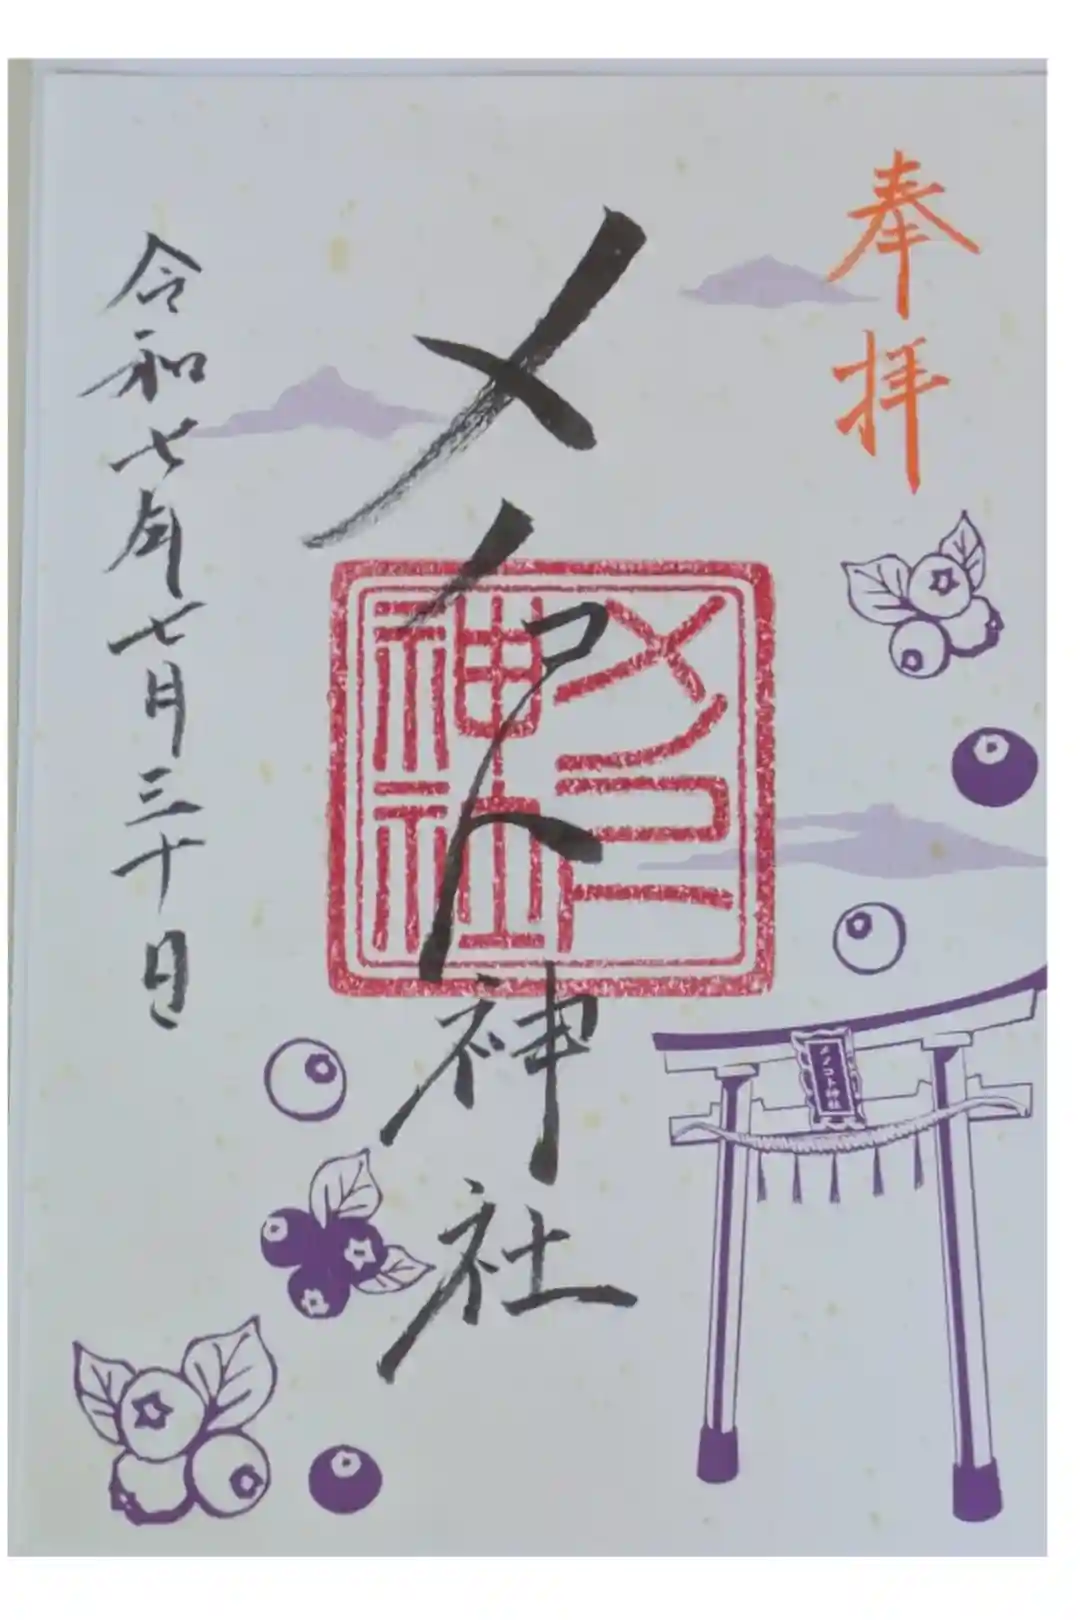 奉拝
メノコト神社
メノコト神社
メノコト神社
令和七年七月三十日